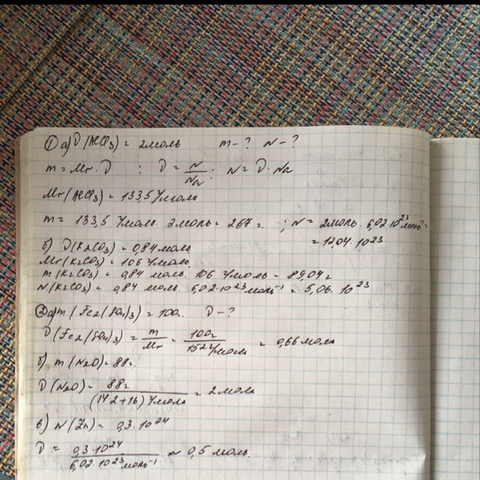 ① а) ν(AlCl₃) = 2моль m - ? N - ?
m = Mr · ν ; ν = N/Nₐ ; N = ν · Nₐ
Mr(AlCl₃) = 133,5 г/моль
m = 133,5 г/моль · 2моль = 267 г. ; N = 2моль · 6,02·10²³ моль⁻¹ =
= 12,04 · 10²³
б) ν(K₂CO₃) = 0,84 моль
Mr(K₂CO₃) = 106 г/моль
m(K₂CO₃) = 0,84 моль · 106 г/моль = 89,04 г
N(K₂CO₃) = 0,84 моль · 6,02·10²³ моль⁻¹ = 5,06 · 10²³
② а) m(Fe₂(SO₄)₃) = 100г. ν - ?
ν(Fe₂(SO₄)₃) = m/Mr = 100г/152 г/моль = 0,66 моль
б) m(N₂O) = 88г.
ν(N₂O) = 88г/(14·2+16) г/моль = 2 моль
в) N(Zn) = 0,3 · 10²⁴
ν = 0,3·10²⁴/6,02·10²³ моль⁻¹ ≈ 0,5 моль.